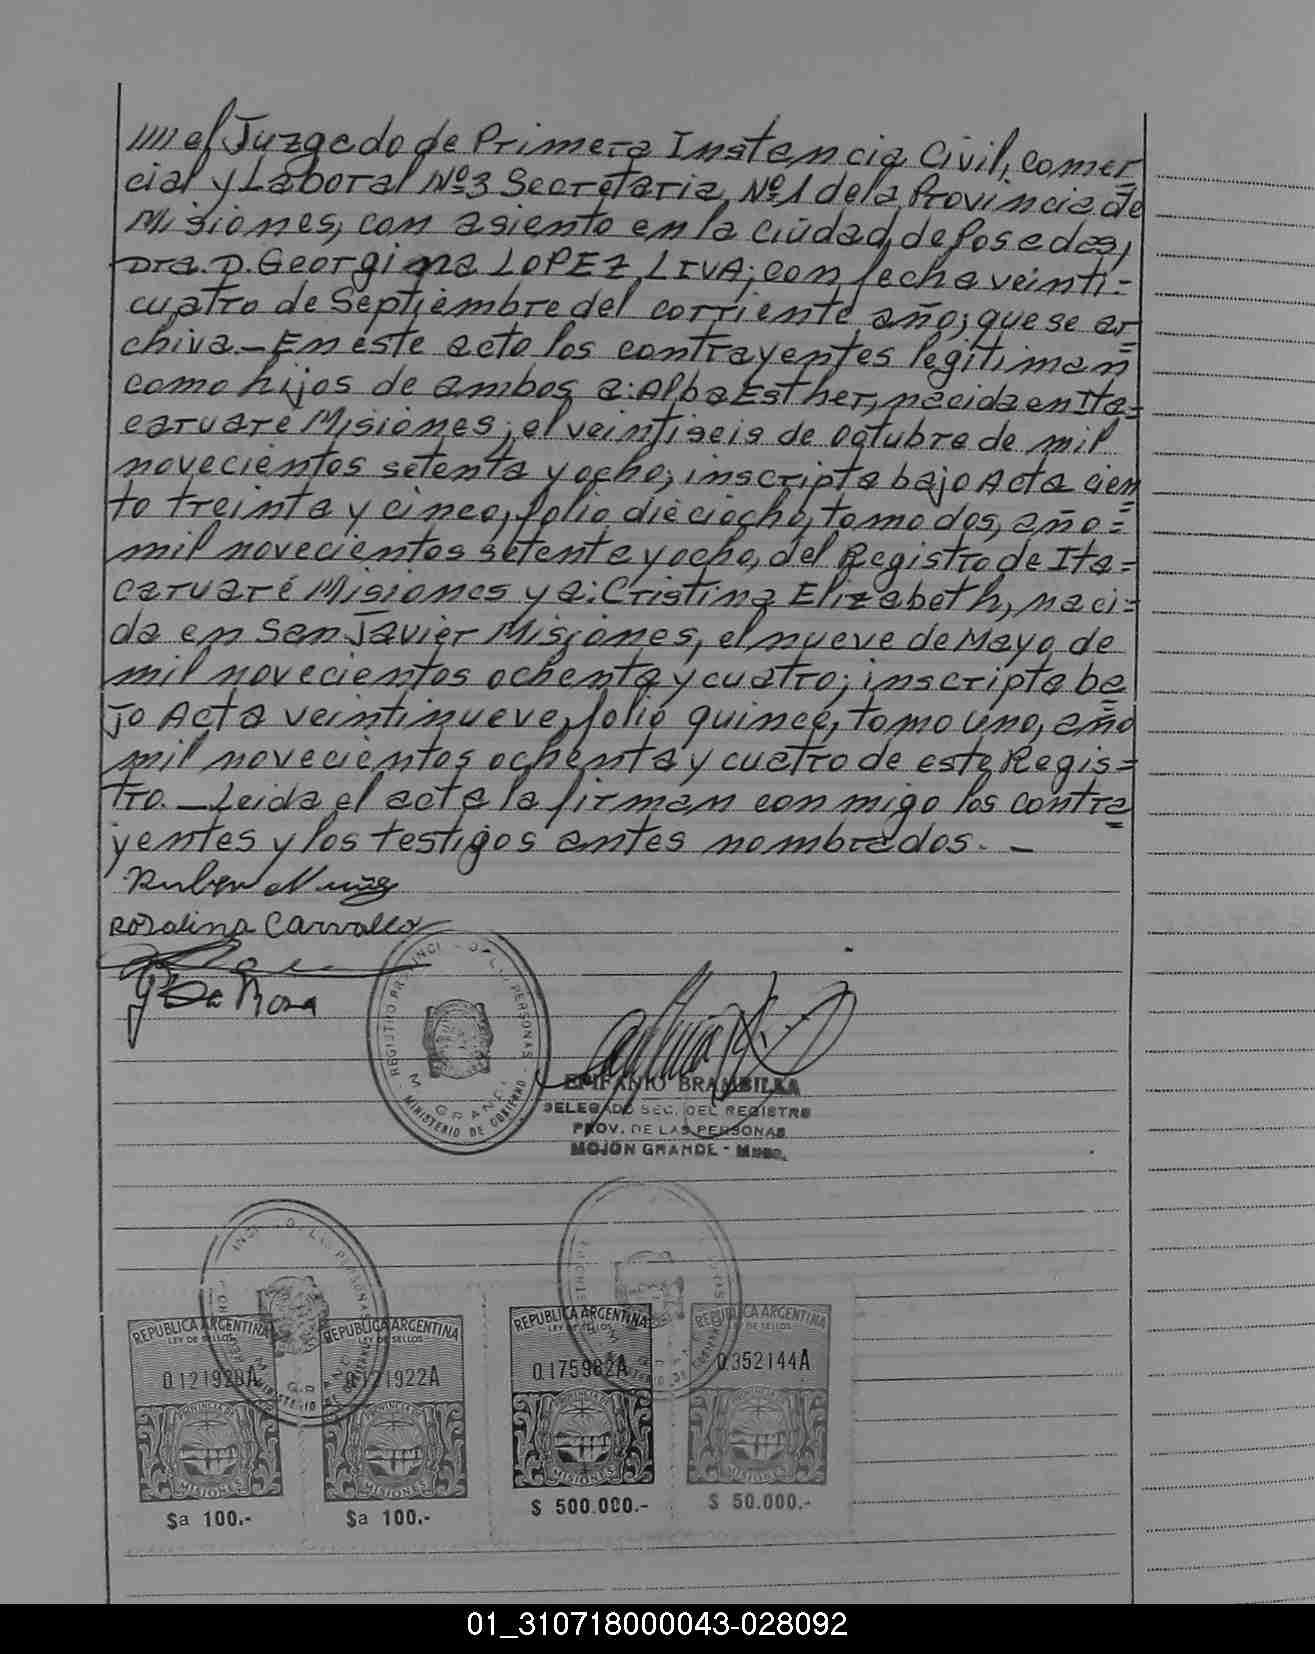 //// el Juzgado de Primera Instancia Civil, Comer
cial y Laboral Nº3 Secretaria Nº1 de la Provincia de
Misiones, con asiento en la ciudad de Posadas,
Dra. D. Georgina LOPEZ LIVA; con fecha veinti=
cuatro de Septiembre del corriente año; que se ar
chiva.- En este acto los contrayentes legitiman
como hijos de ambos a: Alba Esther, nacida en Ita=
caruaré Misiones, el veintiseis de octubre de mil
novecientos setenta y ocho, inscripta bajo Acta cien
to treinta y cinco, folio dieciocho, tomo dos, año=
mil novecientos setenta y ocho, del Registro de Ita=
caruaré Misiones y a: Cristina Elizabeth, naci=
da en San Javier Misiones, el nueve de Mayo de
mil novecientos ochenta y cuatro; inscripta ba
jo Acta veintinueve, folio quince, tomo uno, año
mil novecientos ochenta y cuatro de este Regis=
tro. - Leida el acta la firman con migo los contra
yentes y los testigos antes nombrados. -
Ruben Nuñez
Rosalina Carvallo
Da Rosa
REGISTRO PROVINCI DE L PERSONAS
M GRANDE
MINISTERIO DE GOBIERNO
EPIFANIO BRAMBILLA
DELEGADO SEC. DEL REGISTRO
PROV. DE LAS PERSONAS
MOJON GRANDE - Mnes.
REPUBLICA ARGENTINA REPUBLICA ARGENTINA REPUBLICA ARGENTINA REPUBLICA ARGENTINA
LEY DE SELLOS LEY DE SELLOS LEY DE SELLOS LEY DE SELLOS
0.121922A 0.175982A 0.352144A
PROVINCIA DE PROVINCIA DE PROVINCIA DE PROVINCIA DE
MISIONES MISIONES MISIONES MISIONES
$a 100.- $a 100.- $ 500.000.- $ 50.000.-
01_310718000043-028092